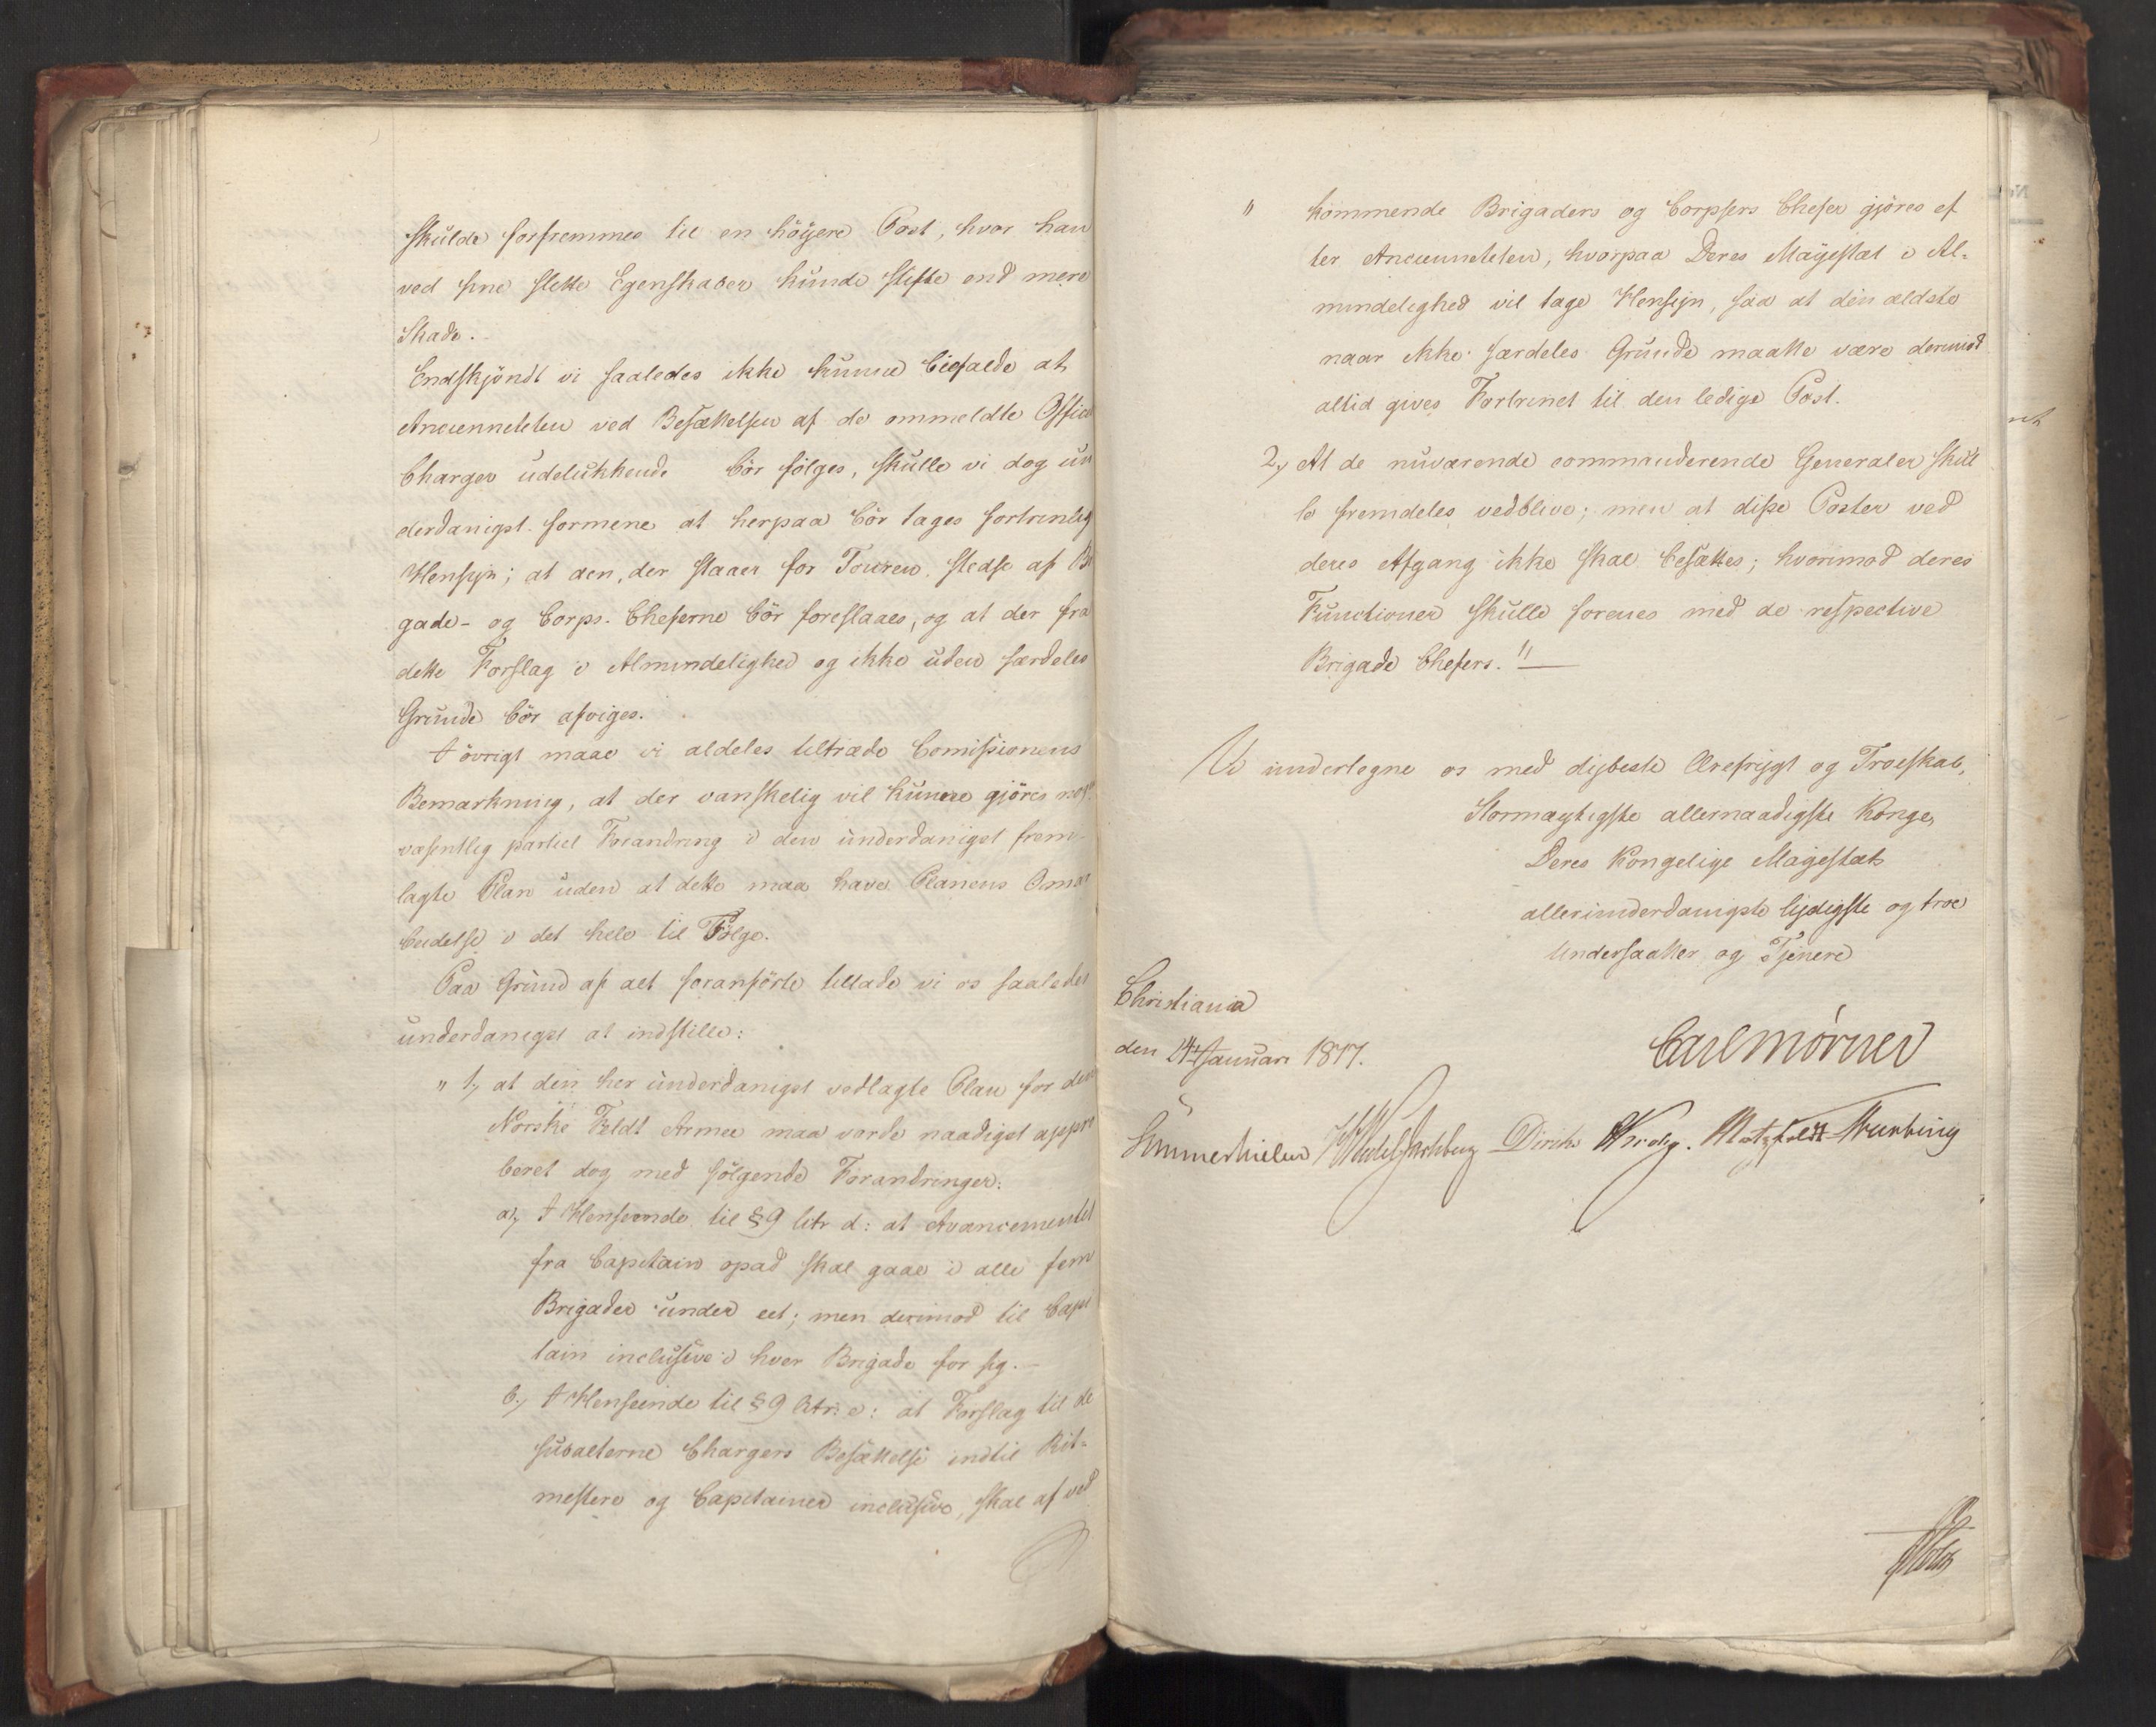 skulde forfremmes til en höyere Post, hvor han
ved sine slette Egenskaber kunde stifte end mere
Skade.
Endskjöndt vi saaledes ikke kunne biefalde at
Ancienneteten ved Besættelsen af de ommeldte Offic
Charger udelukkende bör fölges, skulle vi dog un
derdanigst formene at herpaa bör tages fortrinlig
Hensyn; at den, der staaer for Touren, stedse af Bri
gade- og Corps-Cheferne bör foreslaaes, og at der fra
dette Forslag i Almindelighed og ikke uden særdeles
Grunde bör afviges.
I övrigt maae vi aldeles tiltræde Comissionens
Bemærkning, at der vanskelig vil kunne gjöres nog
væsentlig partiel Forandring i den underdanigst frem-
lagte Plan uden at dette maa have Planens Omar
beidelse i det hele til Fölge.
Paa Grund af alt foranförte tillade vi os saaledes
underdanigst at indstille:
" 1, at den her underdanigst vedlagte Plan for den
Norske Feldt Armee maa vorde naadigst appro
beret dog med fölgende Forandringer:
a, I Henseende til § 9 litr d: at Avancementet
fra Capitain opad skal gaae i alle fem
Brigader under eet; men derimod til Capi
tain inclusive i hver Brigade for sig.-
b, I Henseende til § 9 litr: e: at Forslag til de
subalterne Chargers Besættelse indtil Rit-
mestere og Capitainer inclusive, skal af ved
" kommende Brigaders og Corpsers Chefer gjöres ef
ter Ancienneteten, hvorpaa Deres Mayestæt i Al-
mindelighed vil tage Hensyn, saa at den ældste
naar ikke særdeles Grunde maatte være derimod
altid gives Fortrinet til den ledige Post.
2, At de nuværende commanderende Generaler skul
le fremdeles vedblive; men at disse Poster ved
deres Afgang ikke skal besættes; hvorimod deres
Functioner skulle forenes med de respective
Brigade Chefers. "
Vi undertegne os med dybeste Ærefrygt og Troeskab,
Stormægtigste allernaadigste Konge,
Deres Kongelige Mayestæts
allerunderdanigste lydigste og troe
Undersaatter og Tjenere
Christiania
den 24 Januar 1817.
Carl Mörner
Sommerhielm Wedel Jarlsberg Diriks Krohg. Motzfeldt
Holst